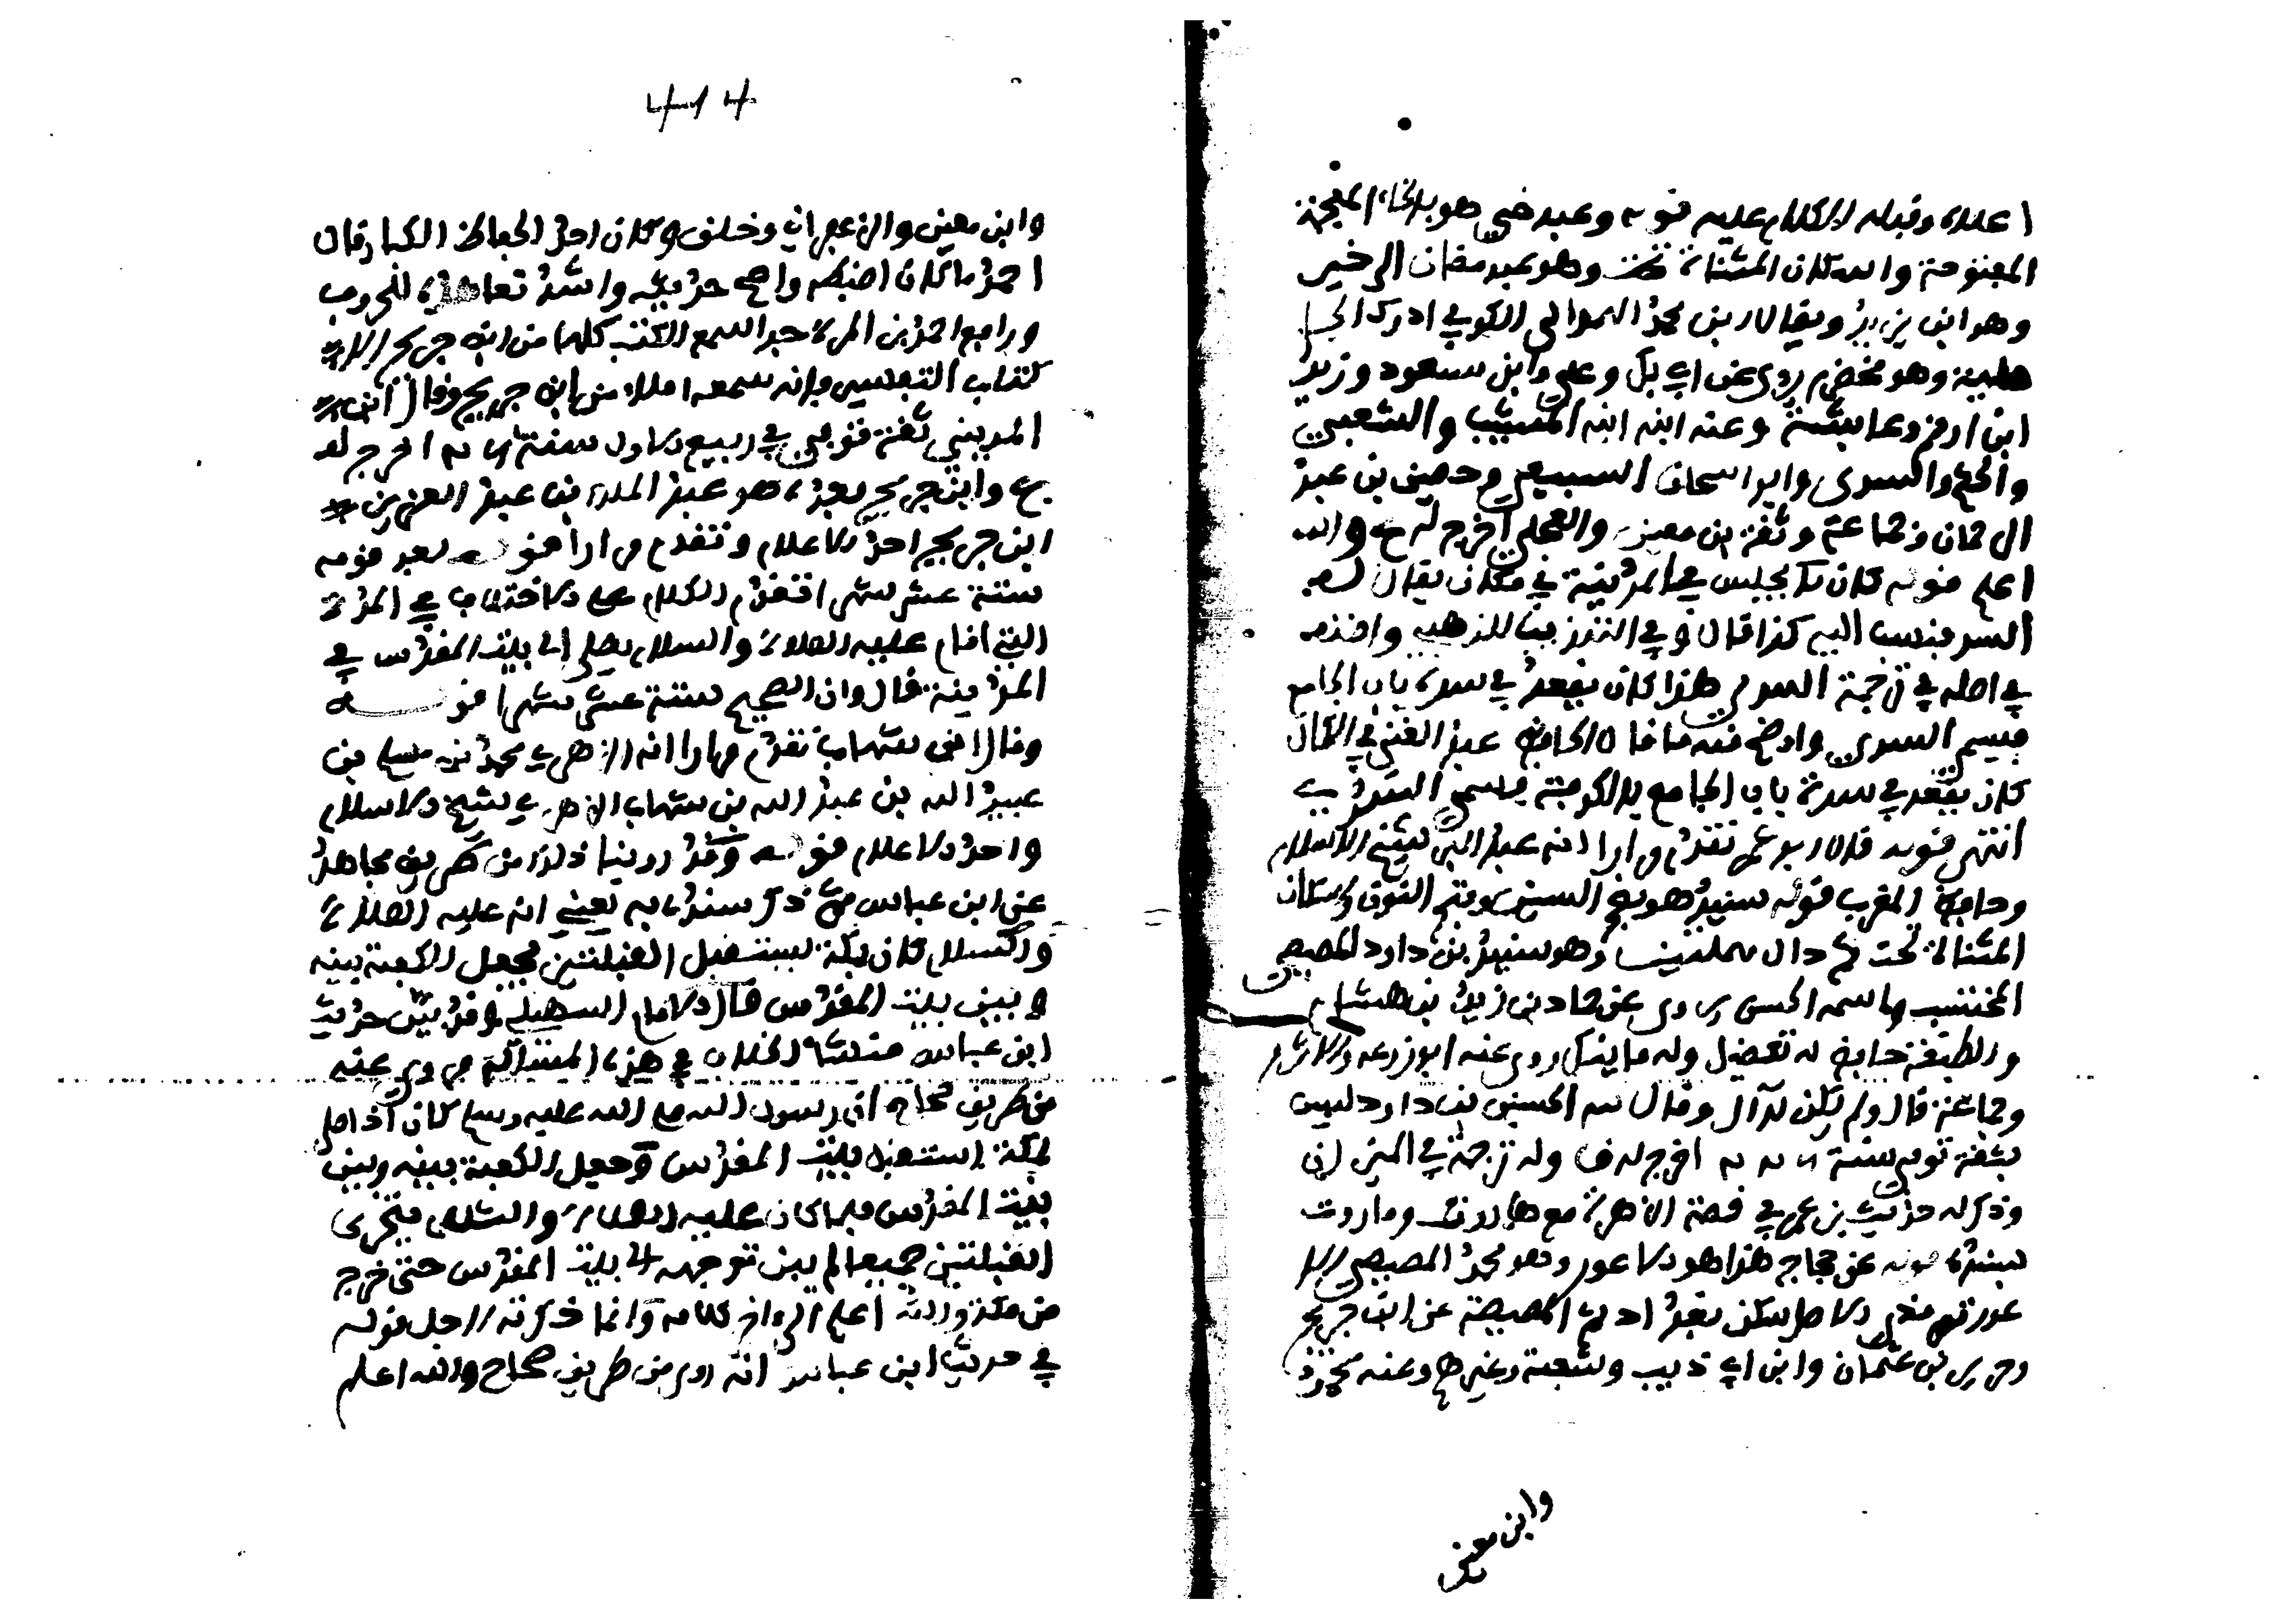 اعلاه وقبله الكلام عليه قوله وعبد خير هو بالخاء المعجمة
المفتوحة واسكان المثناة تحت وهو عبد مضاف الى خير
وهو ابن يزيد ويقال ابن محمد الهمداني الكوفي ادرك الجا
هلية وهو مخضرم روى عن ابي بكر وعلي وابن مسعود وزيد
ابن ارقم وعائشة وعنه ابنه المسيب والشعبي
والحكم والسدي وابو اسحاق السبيعي وحصين بن عبد
الرحمان وجماعة وثقه ابن معين والعجلي اخرج له ع والله
اعلم قوله كان يجلس في المدينة في مكان يقال له
السد فنسب اليه كذا قال وفي التذهيب للذهبي واخذه
في اصله في ترجمة السدي هذا كان يقعد في سدة باب الجامع
فسمي السدي واوضح منه ما قال الحافظ عبد الغني في الكمال
كان يقعد في سدة باب الجامع بالكوفة فسمي السدي
انتهى قوله قال ابو عمر تقدم مرارا انه ابن عبد البر شيخ الاسلام
وحافظ المغرب قوله سنيد هو بضم السين وفتح النون واسكان
المثناة تحت ثم دال مهملتين وهو سنيد بن داود المصيصي
المحتسب واسمه الحسين روى عن حماد بن زيد بن هشام
والطبقة حافظ له تفسير وله ما ينكر روى عنه ابو زرعة والاثرم
وجماعة قال ولم يكن بذاك وقال س الحسين بن داود ليس
بثقة توفي سنة ٢٢٦ اخرج له ق وله ترجمة في الميزان
وذكر له حديث بن عمر في قصة الزهرة مع هاروت وماروت
بسنده قوله عن حجاج هذا هو الاعور وهو محمد المصيصي الا
عور ترمذي الاصل سكن بغداد ثم المصيصة عن ابن جريج
وحريز بن عثمان وابن ابي ذيب وشعبة وغيرهم وعنه محمد
وابن معين
414
وابن معين والزعفراني وخلق وكان احد الحفاظ الكبار قال
احمد ما كان اضبطه واصح حديثه واشد تعاهده للحروف
ورفع احمد بن امره جدا سمع الكتب كلها من ابن جريج الا
كتاب التفسير فانه سمعه املاء من ابن جريج وقال ابن
المديني ثقة توفي في ربيع الاول سنة ٢٠٦ اخرج له
ع وابن جريج بعده هو عبد الملك بن عبد العزيز
ابن جريج احد الاعلام وتقدم مرارا قوله بعد قدومه
ستة عشر شهرا تقدم الكلام على الاختلاف في المدة
التي اقام عليه الصلاة والسلام يصلي الى بيت المقدس في
المدينة قال وان الصحيح ستة عشر شهرا قوله
وقال ابن شهاب تقدم مرارا انه الزهري محمد بن مسلم بن
عبيد الله بن عبد الله بن شهاب الزهري شيخ الاسلام
واحد الاعلام قوله وقد روينا ذلك من طريق مجاهد
عن ابن عباس ثم ذكر سنده به يعني انه عليه الصلاة
والسلام كان بمكة يستقبل القبلتين يجعل الكعبة بينه
وبين بيت المقدس قال الامام السهيلي وقد بين حديث
ابن عباس منشا الخلاف في هذه المسالة فروي عنه
من طريق صحاح ان رسول الله صلى الله عليه وسلم كان اذا صلى
بمكة استقبل بيت المقدس وجعل الكعبة بينه وبين
بيت المقدس فلما كان عليه الصلاة والسلام يتحرى
القبلتين جميعا لم يبن توجهه الى بيت المقدس حتى خرج
من مكة والله اعلم الى اخر كلامه وانما ذكرته لاجل قوله
في حديث ابن عباس انه روي من طريق صحاح والله اعلم